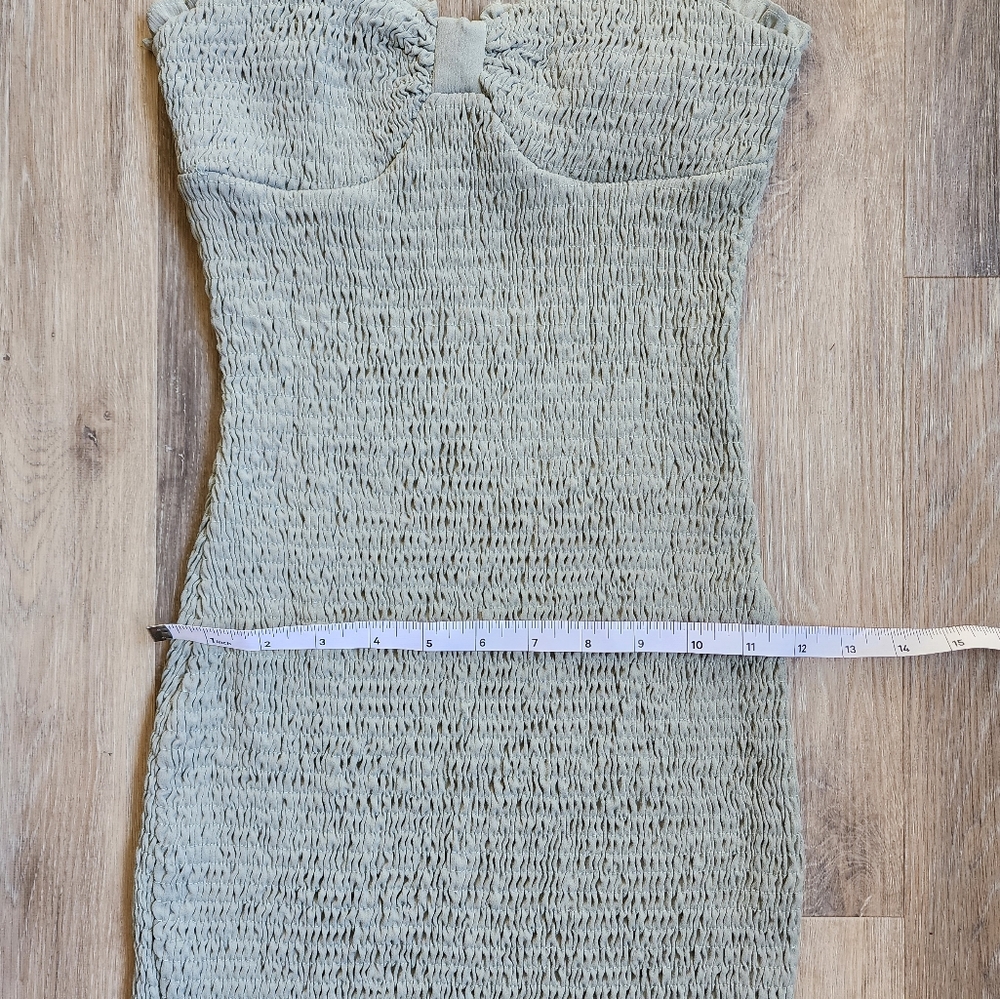 1 inch 2 3 4 5 6 7 8 9 10 11 12 13 14 15